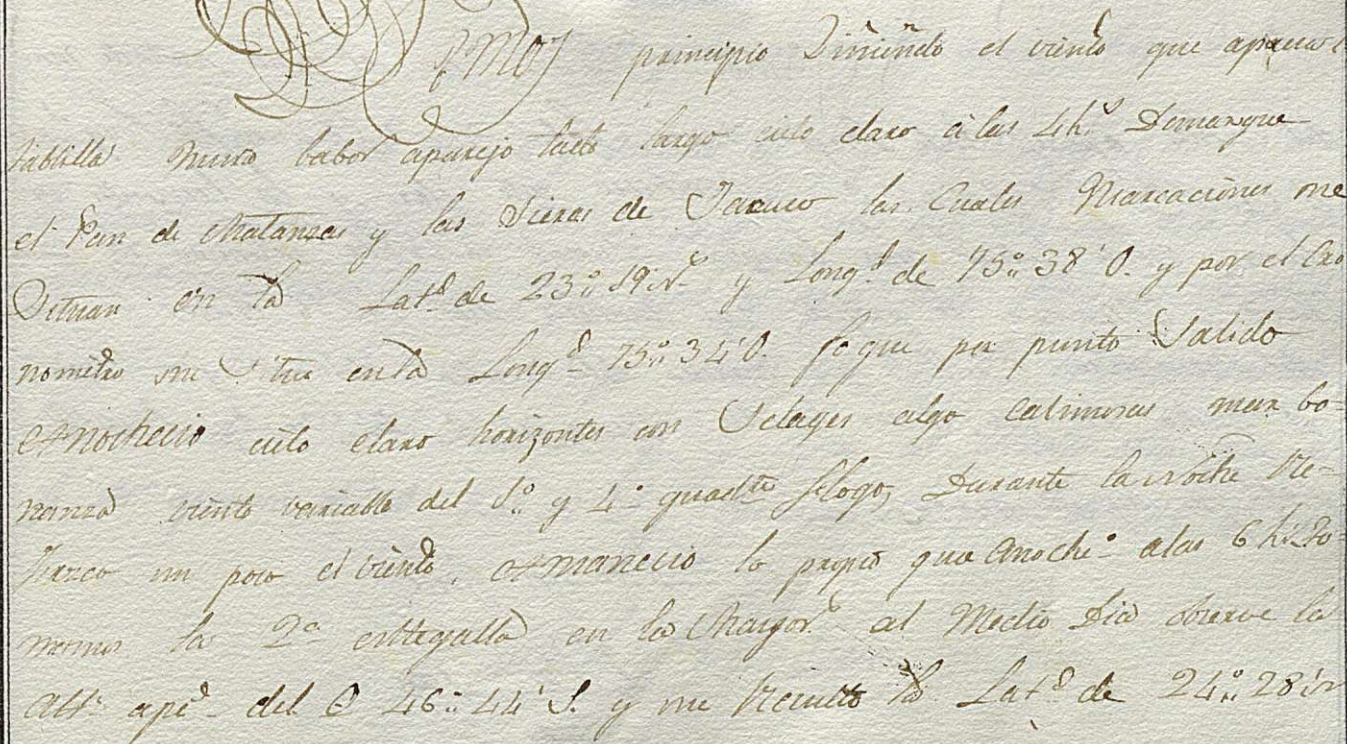 Dimos principio Siñiendo el viento que aparece
tablilla mura babor aparejo todo largo cielo claro á las 4 hs. Demarque
el Pan de Matanzas y las Sieras de Jaruco las Cuales Marcaciones me
Situan en la Latd. de 23°. 19' N. y Longd. de 75°. 38' O. y por el Cro
nometro me Situe en la Longd. 75°. 34' O. lo que por punto Salido
Anochecio cielo claro horizontes con Selages algo calimosos mar bo=
nanza viento variable del 1°. y 4°. quadte flogo, Durante la Noche Re=
fresco un poco el viento, Amanecio lo propio que Anoche. a las 6 hs. To=
memos la 2a en la Mayor. al Medio Dia observe la
Alta. apte. del ʘ 46°. 44' S. y me Resulto la Latd. de 24°. 28' N